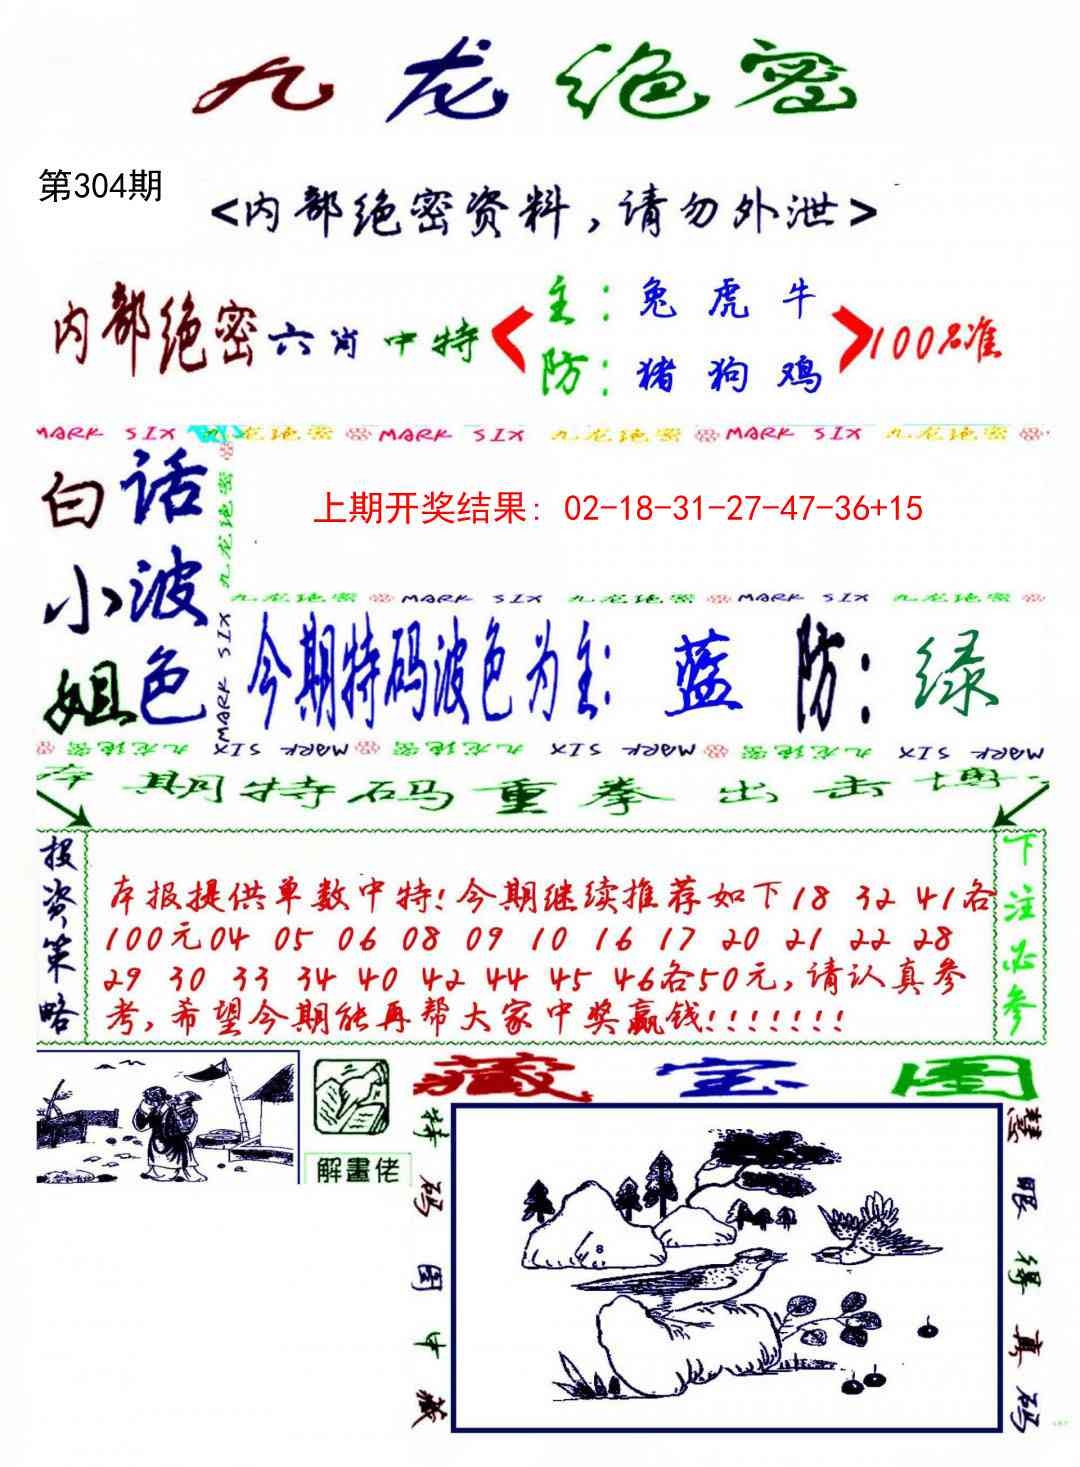 九龙绝密
第304期
<内部绝密资料,请勿外泄>
内部绝密六肖中特
主:兔 虎 牛
防:猪 狗 鸡
100%准
MARK SIX 九龙绝密 MARK SIX 九龙绝密 MARK SIX 九龙绝密
白小姐
话波色
九龙绝密
MARK SIX
上期开奖结果: 02-18-31-27-47-36+15
九龙绝密 MARK SIX 九龙绝密 MARK SIX 九龙绝密
今期特码波色为主: 蓝 防: 绿
九龙绝密 MARK SIX 九龙绝密 MARK SIX 九龙绝密 MARK SIX
本期特码重拳出击博
投资策略
本报提供单数中特!今期继续推荐如下18 32 41各
100元04 05 06 08 09 10 16 17 20 21 22 28
29 30 33 34 40 42 44 45 46各50元,请认真参
考,希望今期能再帮大家中奖赢钱!!!!!!!
下注必参
解畫佬
藏宝图
特码图中藏
慧眼得真码
8